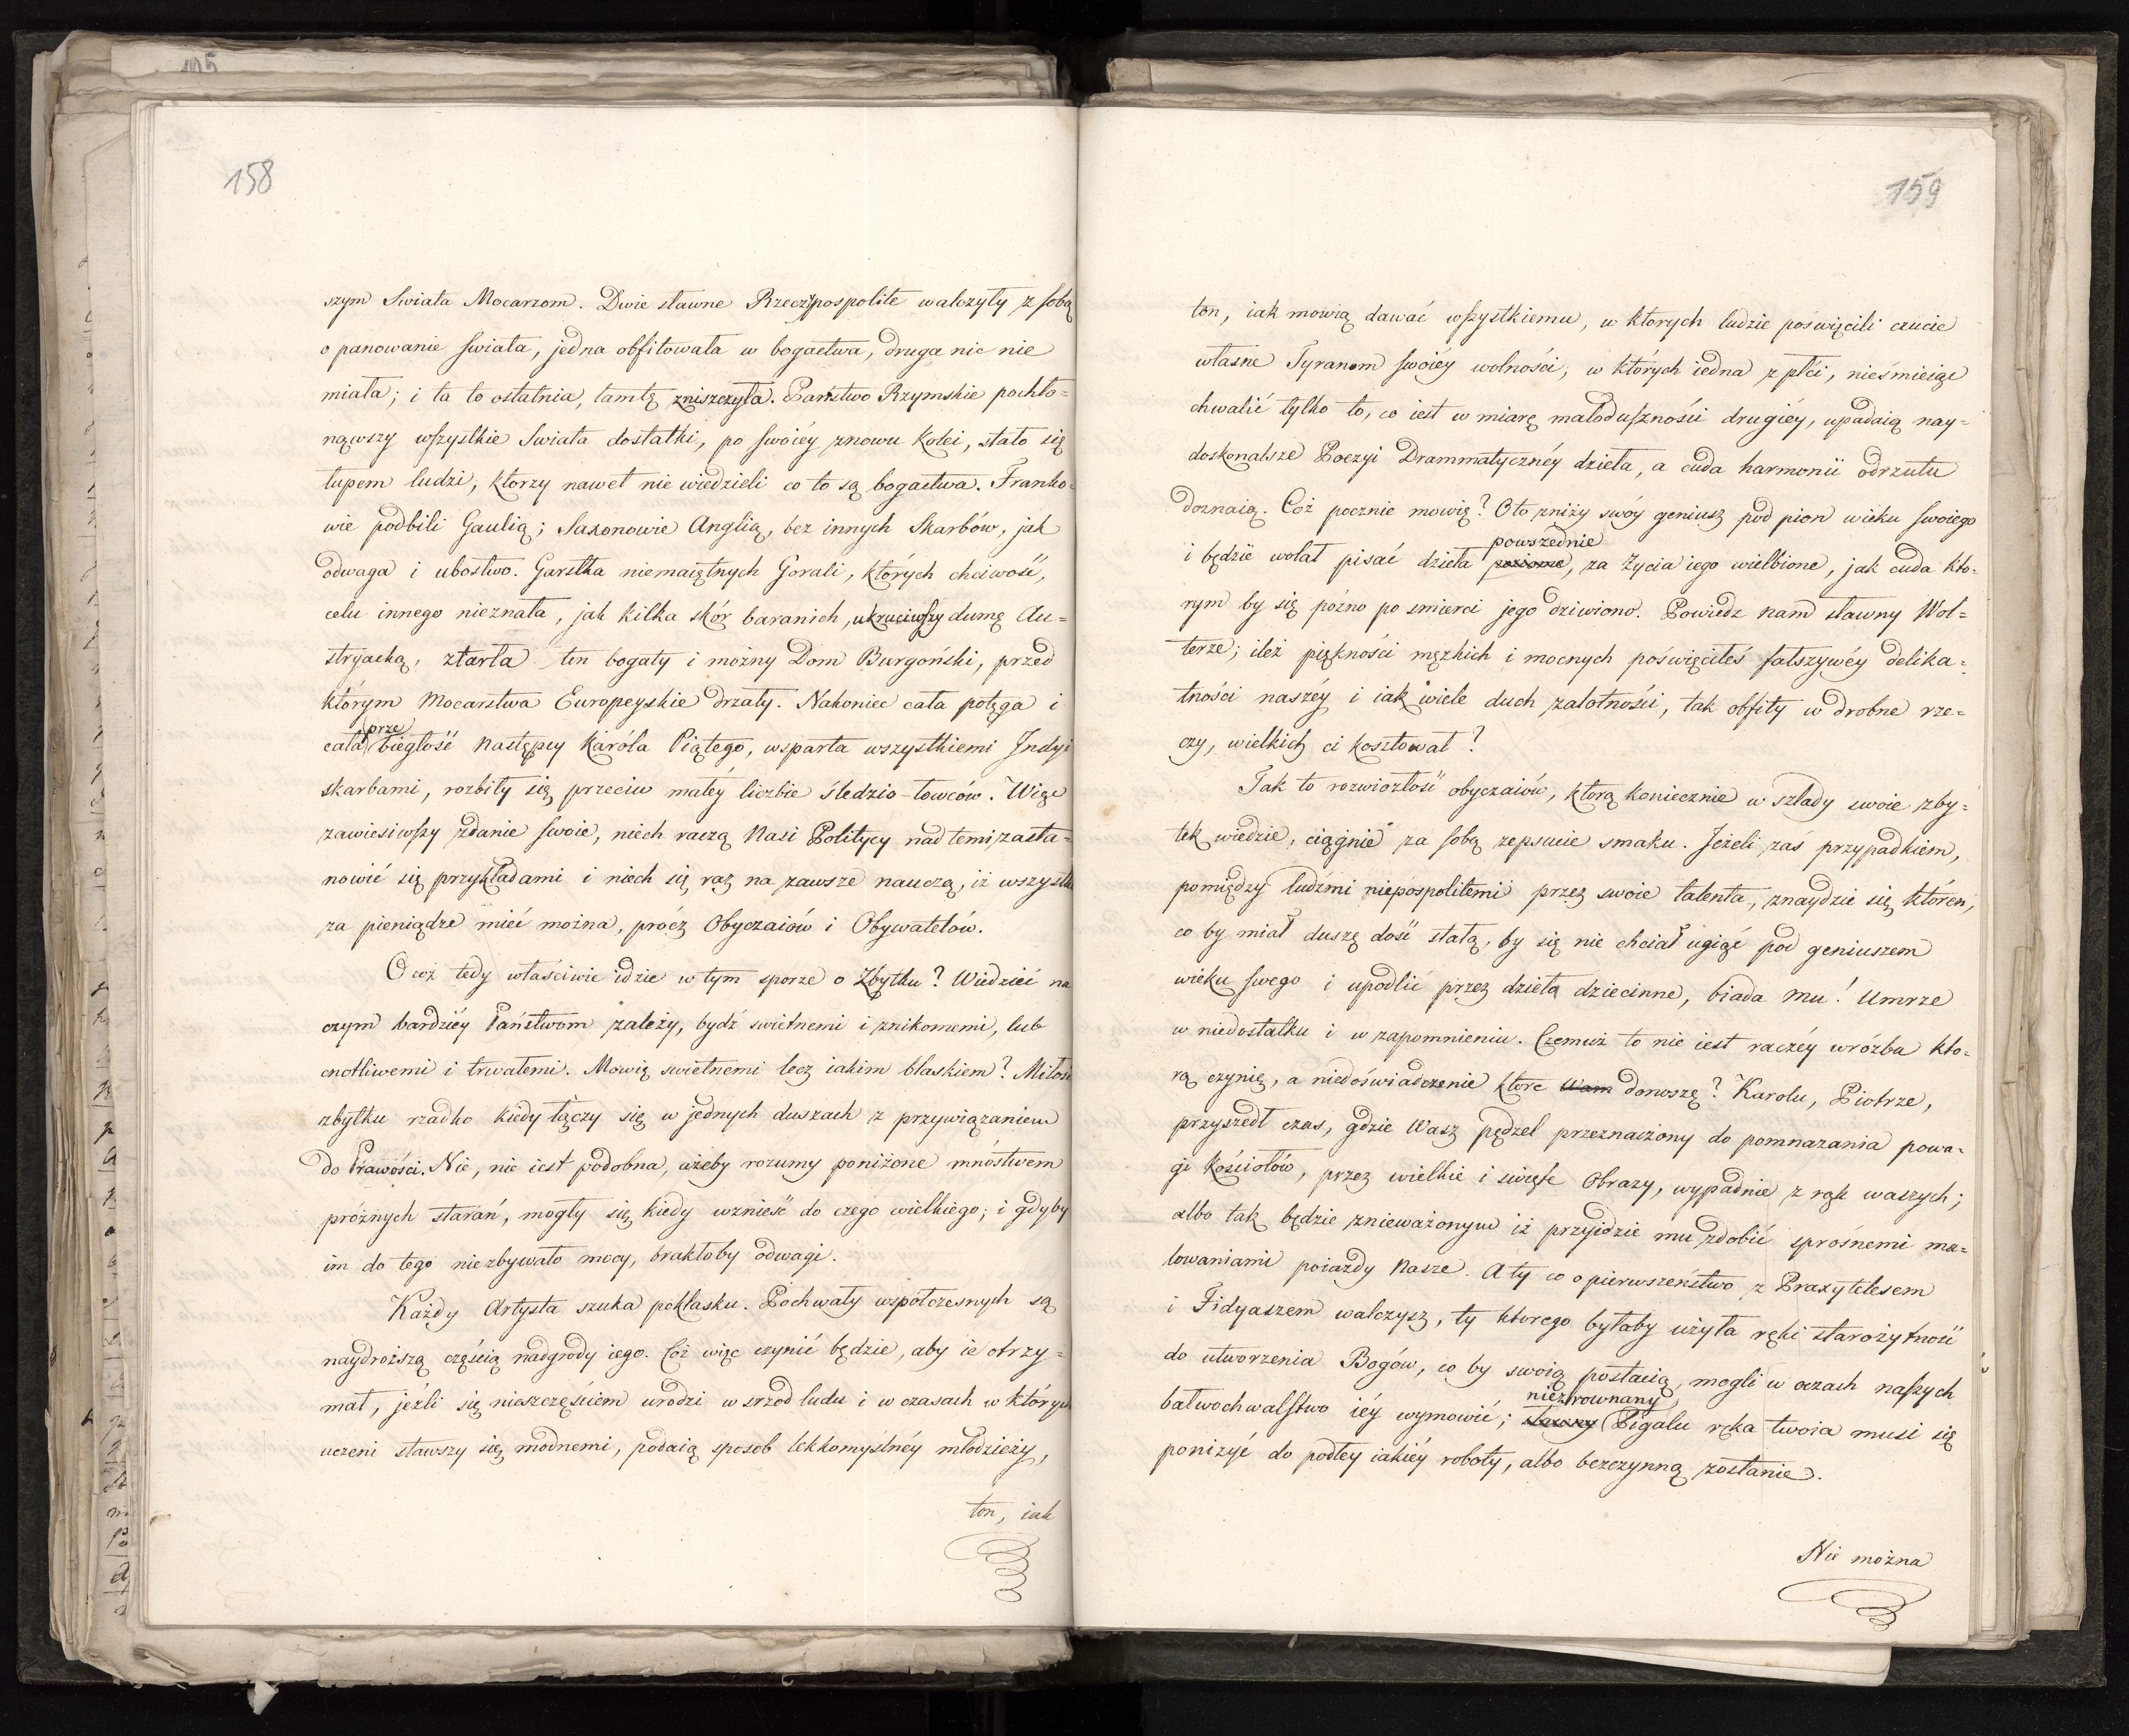 105
158
szym Świata Mocarzom. Dwie sławne Rzeczypospolite walczyły z sobą
o panowanie świata, jedna obfitowała w bogactwa, druga nic nie
miała; i ta to ostatnia, tamtę zniszczyła. Państwo Rzymskie pochło=
nąwszy wszystkie Świata dostatki, po swoiéy znowu kolei, stało się
łupem ludzi, ktorzy nawet nie wiedzieli co to są bogactwa. Franko=
wie podbili Gaulią; Saxonowie Anglią, bez innych Skarbów, jak
odwaga i ubostwo. Garstka niemaiętnych Gorali, których chciwość,
celu innego nieznała, jak kilka skór baranich, ukruciwszy dumę Au=
stryacką, ztarła ten bogaty i możny Dom Burgoński, przed
którym Mocarstwa Europeyskie drżały. Nakoniec cała potęga i
prze
cała biegłość następcy Karóla Piątego, wsparta wszystkiemi Indyi
skarbami, rozbiły się, przeciw małéy liczbie śledzio-łowców. Więc
zawiesiwszy zdanie swoie, niech raczą Nasi Politycy nad temi zasta=
nowić się przykładami i niech się raz na zawsze nauczą, iż wszystk
za pieniądze mieć można, prócz Obyczaiów i Obywatelów.
O coż tedy właściwie idzie w tym sporze o Zbytku? Wiedzieć na
czym bardziéy Państwom zależy, bydź swietnemi i znikomemi, lub
cnotliwemi i trwałemi. Mowię swietnemi lecz iakim blaskiem? Miłość
zbytku rzadko kiedy łączy się w jednych duszach z przywiązaniem
do Prawości. Nie, nie iest podobna, ażeby rozumy poniżone mnóstwem
próżnych starań, mogły się kiedy wznieść do czego wielkiego; i gdyby
im do tego niezbywało mocy, brakłoby odwagi.
Każdy Artysta szuka poklasku. Pochwały wspołczesnych są
naydroższą częścią nadgrody iego. Cóż więc czynić będzie, aby ie otrzy=
mał, jeźli się nieszczęściem urodzi w srzod ludu i w czasach w których
uczeni stawszy się modnemi, podaią sposob lekkomyślnéy młodzieży,
ton, iak
159
ton, iak mowią dawać wszystkiemu, w ktorych ludzie poświęcili czucie
własne Tyranom swoiéy wolności; w których iedna z płci, nieśmieiąc
chwalić tylko to, co iest w miarę małoduszności drugiéy, upadaią nay=
doskonalsze Poezyi Drammatycznéy dzieła, a cuda harmonii odrzutu
doznaią. Cóż pocznie mowię? Oto zniży swóy geniusz pod pion wieku swoiego
powszednie
i będzie wolał pisać dzieła poziome, za życia iego wielbione, jak cuda kto=
rym by się pózno po smierci jego dziwiono. Powiedz nam sławny Wol=
terze; ileż piękności męzkich i mocnych poświęciłeś fałszywéy delika=
tności naszéy i iak wiele duch zalotności, tak obfity w drobne rze=
czy, wielkich ci kosztował?
Tak to rozwiozłość obyczaiów, ktorą koniecznie w szlady swoie zby=
tek wiedzie, ciągnie za sobą zepsucie smaku. Jeżeli zaś przypadkiem,
pomiędzy ludźmi niepospolitemi przez swoie talenta, znaydzie się któren,
co by miał duszę dość stałą, by się nie chciał ugiąć pod geniuszem
wieku swego i upodlić przez dzieła dziecinne, biada mu! Umrze
w niedostatku i w zapomnieniu. Czemuż to nie iest raczéy wróżba kto=
rą czynię, a niedoświadczenie ktore Wam donoszę? Karolu, Piotrze,
przyszedł czas, gdzie Wasz pędzel przeznaczony do pomnażania powa=
gi Kościołów, przez wielkie i swięte Obrazy, wypadnie z rąk waszych;
albo tak będzie znieważonym iż przyidzie mu zdobić sprosnemi ma=
lowaniami poiazdy Nasze. A ty co o pierwszeństwo z Praxytelesem
i Fidyaszem walczysz, ty ktorego byłaby użyła ręki starożytność
do utworzenia Bogów, co by swoią postacią, mogli w oczach naszych
niezrownany
bałwochwalstwo iéy wymowić; sławny Pigalu ręka twoia musi się
poniżyć do podłey iakiéy roboty, albo bezczynną zostanie.
Nie można